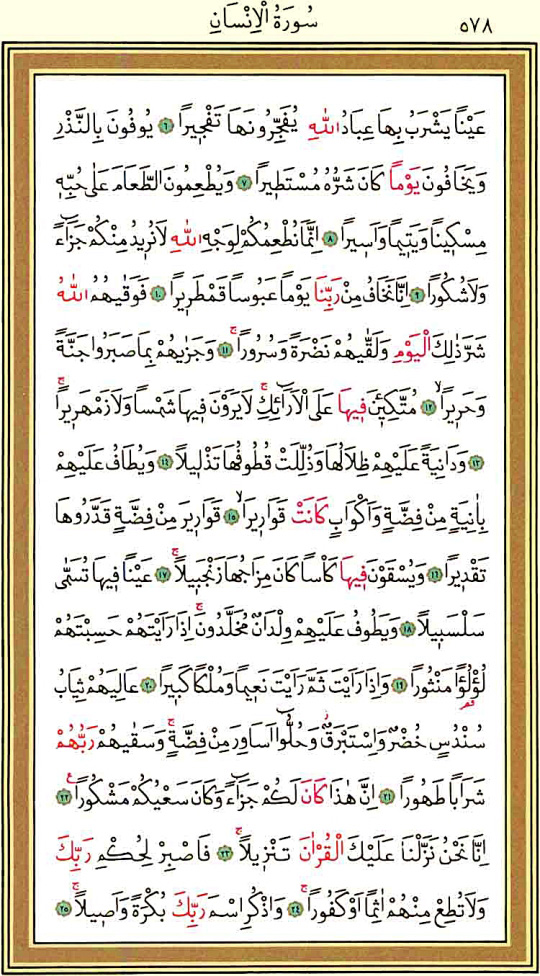 سُورَةُ الْاِنْسَانِ ٥٧٨
عَيْنًا يَشْرَبُ بِهَا عِبَادُ اللّٰهِ يُفَجِّرُونَهَا تَفْج۪يرًا ﴿٦﴾ يُوفُونَ بِالنَّذْرِ
وَيَخَافُونَ يَوْمًا كَانَ شَرُّهُ مُسْتَط۪يرًا ﴿٧﴾ وَيُطْعِمُونَ الطَّعَامَ عَلٰى حُبِّه۪
مِسْك۪ينًا وَيَت۪يمًا وَاَس۪يرًا ﴿٨﴾ اِنَّمَا نُطْعِمُكُمْ لِوَجْهِ اللّٰهِ لَا نُر۪يدُ مِنْكُمْ جَزَٓاءً
وَلَا شُكُورًا ﴿٩﴾ اِنَّا نَخَافُ مِنْ رَبِّنَا يَوْمًا عَبُوسًا قَمْطَر۪يرًا ﴿١٠﴾ فَوَقٰيهُمُ اللّٰهُ
شَرَّ ذٰلِكَ الْيَوْمِ وَلَقّٰيهُمْ نَضْرَةً وَسُرُورًاۚ ﴿١١﴾ وَجَزٰيهُمْ بِمَا صَبَرُوا جَنَّةً
وَحَر۪يرًاۙ ﴿١٢﴾ مُتَّكِـ۪ٔينَ ف۪يهَا عَلَى الْاَرَٓائِكِۚ لَا يَرَوْنَ ف۪يهَا شَمْسًا وَلَا زَمْهَر۪يرًاۚ
﴿١٣﴾ وَدَانِيَةً عَلَيْهِمْ ظِلَالُهَا وَذُلِّلَتْ قُطُوفُهَا تَذْل۪يلًا ﴿١٤﴾ وَيُطَافُ عَلَيْهِمْ
بِاٰنِيَةٍ مِنْ فِضَّةٍ وَاَكْوَابٍ كَانَتْ قَوَار۪يرَا۬ۙ ﴿١٥﴾ قَوَار۪يرَ مِنْ فِضَّةٍ قَدَّرُوهَا
تَقْد۪يرًا ﴿١٦﴾ وَيُسْقَوْنَ ف۪يهَا كَأْسًا كَانَ مِزَاجُهَا زَنْجَب۪يلًاۚ ﴿١٧﴾ عَيْنًا ف۪يهَا تُسَمّٰى
سَلْسَب۪يلًا ﴿١٨﴾ وَيَطُوفُ عَلَيْهِمْ وِلْدَانٌ مُخَلَّدُونَۚ اِذَا رَاَيْتَهُمْ حَسِبْتَهُمْ
لُؤْلُؤًا مَنْثُورًا ﴿١٩﴾ وَاِذَا رَاَيْتَ ثَمَّ رَاَيْتَ نَع۪يمًا وَمُلْكًا كَب۪يرًا ﴿٢٠﴾ عَالِيَهُمْ ثِيَابُ
سُنْدُسٍ خُضْرٌ وَاِسْتَبْرَقٌۘ وَحُلُّٓوا اَسَاوِرَ مِنْ فِضَّةٍۚ وَسَقٰيهُمْ رَبُّهُمْ
شَرَابًا طَهُورًا ﴿٢١﴾ اِنَّ هٰذَا كَانَ لَكُمْ جَزَٓاءً وَكَانَ سَعْيُكُمْ مَشْكُورًا۟ ﴿٢٢﴾
اِنَّا نَحْنُ نَزَّلْنَا عَلَيْكَ الْقُرْاٰنَ تَنْز۪يلًاۚ ﴿٢٣﴾ فَاصْبِرْ لِحُكْمِ رَبِّكَ
وَلَا تُطِعْ مِنْهُمْ اٰثِمًا اَوْ كَفُورًاۚ ﴿٢٤﴾ وَاذْكُرِ اسْمَ رَبِّكَ بُكْرَةً وَاَص۪يلًاۚ ﴿٢٥﴾